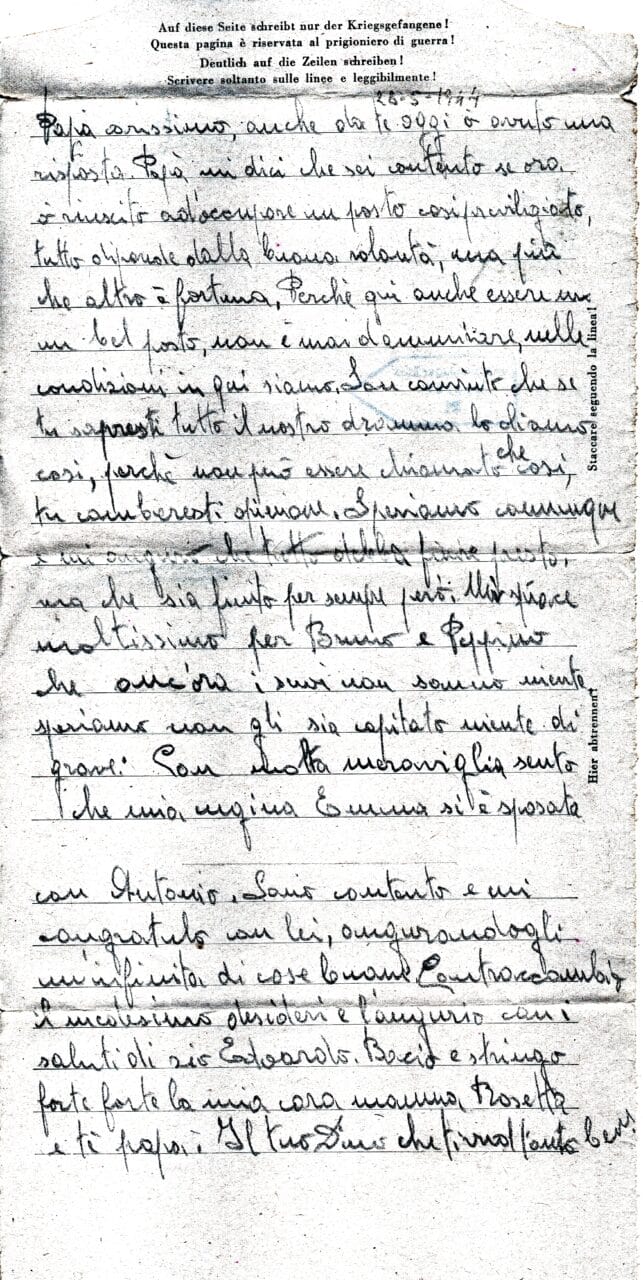 Auf diese Seite schreibt nur der Kriegsgefangene!
Questa pagina è riservata al prigioniero di guerra!
Deutlich auf die Zeilen schreiben!
Scrivere soltanto sulle linee e leggibilmente!
28-5-1944
Papà carissimo, anche da te oggi ò avuto una
risposta. Papà mi dici che sei contento se ora
ò riuscito ad'occupare un posto così priviligiato,
tutto dipende dalla buona volontà, ma più
che altro è fortuna, Perchè qui anche essere in
un bel posto, non è mai d'ammirare, nelle
condizioni in qui siamo. Son convinto che se
tu sapresti tutto il nostro dramma lo diamo
così, perchè non può essere chiamato che così,
tu cambieresti opinione. Speriamo comunque
e mi auguro che tutto debba finire presto,
ma che sia finito per sempre però. Mi spiace
moltissimo per Bruno e Peppino
che anc'ora i suoi non sanno niente
speriamo non gli sia capitato niente di
grave. Con molta meraviglia sento
che mia cugina Emma si è sposata
con Antonio. Sono contento e mi
congratulo con lei, augurandogli
un'infinita di cose buone. Contraccambio
il medesimo desideri e l'augurio con i
saluti di zio Edoardo. Bacio e stringo
forte forte la mia cara mamma, Rosetta
e te papà. Il tuo Dino che ti vuol tanto bene
Staccare seguendo la linea!
Hier abtrennen!